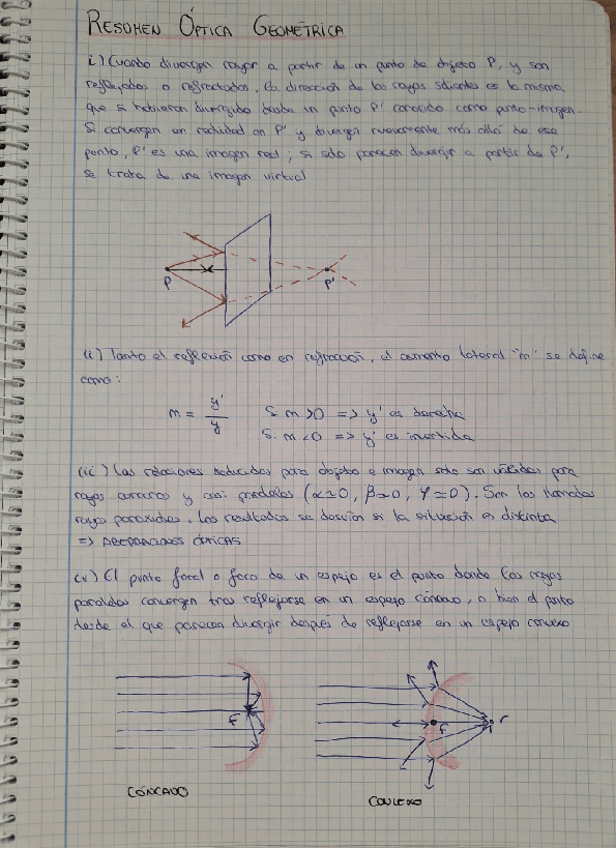 RESUMEN ÓPTICA GEOMÉTRICA
i) Cuando divergen rayos a partir de un punto de objeto P, y son
reflejados o refractados, la dirección de los rayos salientes es la misma
que si hubieran divergido desde un punto P' conocido como punto-imagen.
Si convergen en realidad en P' y divergen nuevamente más allá de ese
punto, P' es una imagen real; si solo parecen divergir a partir de P',
se trata de una imagen virtual
P
P'
ii) Tanto el reflexión como en refracción, el aumento lateral "m" se define
como:
m = y'/y
Si m > 0 => y' es derecha
Si m < 0 => y' es invertida
iii) Las relaciones deducidas para objeto e imagen solo son válidas para
rayos cercanos y casi paralelos (α≃0, β≃0, φ≃0). Son los llamados
rayos paraxiales. Los resultados se desvían si la situación es distinta
=> ABERRACIONES ÓPTICAS
iv) El punto focal o foco de un espejo es el punto donde los rayos
paralelos convergen tras reflejarse en un espejo cóncavo, o bien el punto
desde el que parecen divergir después de reflejarse en un espejo convexo
F
F
CÓNCAVO
CONVEXO